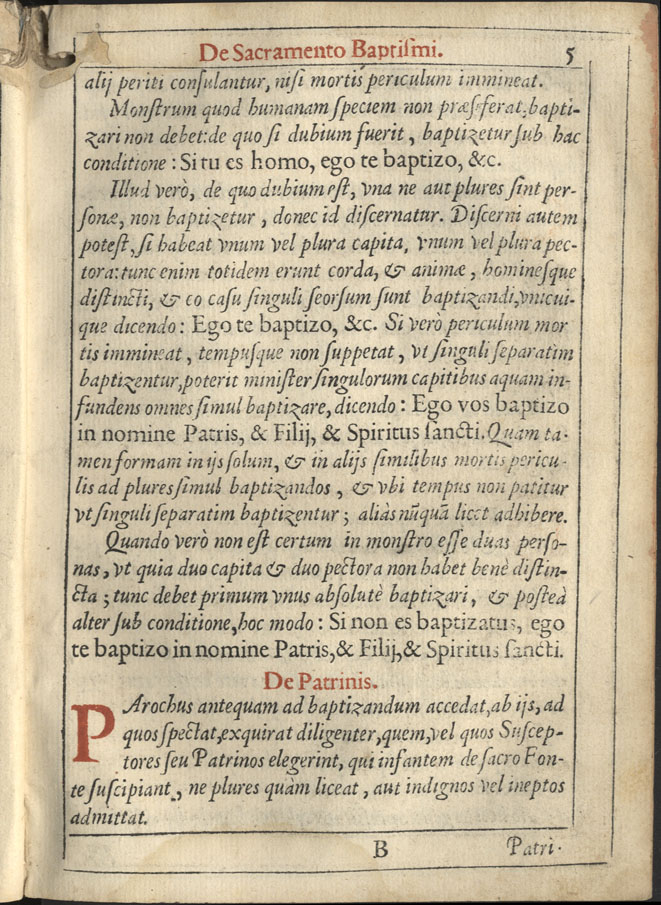 De Sacramento Baptiſmi. 5
alij periti conſulantur, niſi mortis periculum immineat.
Monſtrum quod humanam ſpeciem non præſeferat, bapti-
zari non debet: de quo ſi dubium fuerit, baptizetur ſub hac
conditione: Si tu es homo, ego te baptizo, &c.
Illud verò, de quo dubium eſt, vna ne aut plures ſint per-
ſonæ, non baptizetur, donec id diſcernatur. Diſcerni autem
poteſt, ſi habeat vnum vel plura capita, vnum vel plura pec-
tora: tunc enim totidem erunt corda, & animæ, hominesque
diſtincti, & eo caſu ſinguli ſeorſum ſunt baptizandi, vnicui-
que dicendo: Ego te baptizo, &c. Si verò periculum mor
tis immineat, tempusque non ſuppetat, vt ſinguli ſeparatim
baptizentur, poterit miniſter ſingulorum capitibus aquam in-
fundens omnes ſimul baptizare, dicendo: Ego vos baptizo
in nomine Patris, & Filij, & Spiritus ſancti. Quam ta-
men formam in ijs ſolum, & in alijs ſimilibus mortis pericu-
lis ad plures ſimul baptizandos, & vbi tempus non patitur
vt ſinguli ſeparatim baptizentur; aliàs nũquã licet adhibere.
Quando verò non eſt certum in monſtro eſſe duas perſo-
nas, vt quia duo capita & duo pectora non habet benè diſtin-
cta; tunc debet primum vnus abſolutè baptizari, & poſteà
alter ſub conditione, hoc modo: Si non es baptizatus, ego
te baptizo in nomine Patris, & Filij, & Spiritus ſancti.
De Patrinis.
PArochus antequam ad baptizandum accedat, ab ijs, ad
quos ſpectat, exquirat diligenter, quem, vel quos Suſcep-
tores ſeu Patrinos elegerint, qui infantem de ſacro Fon-
te ſuſcipiant, ne plures quàm liceat, aut indignos vel ineptos
admittat.
B Patri-